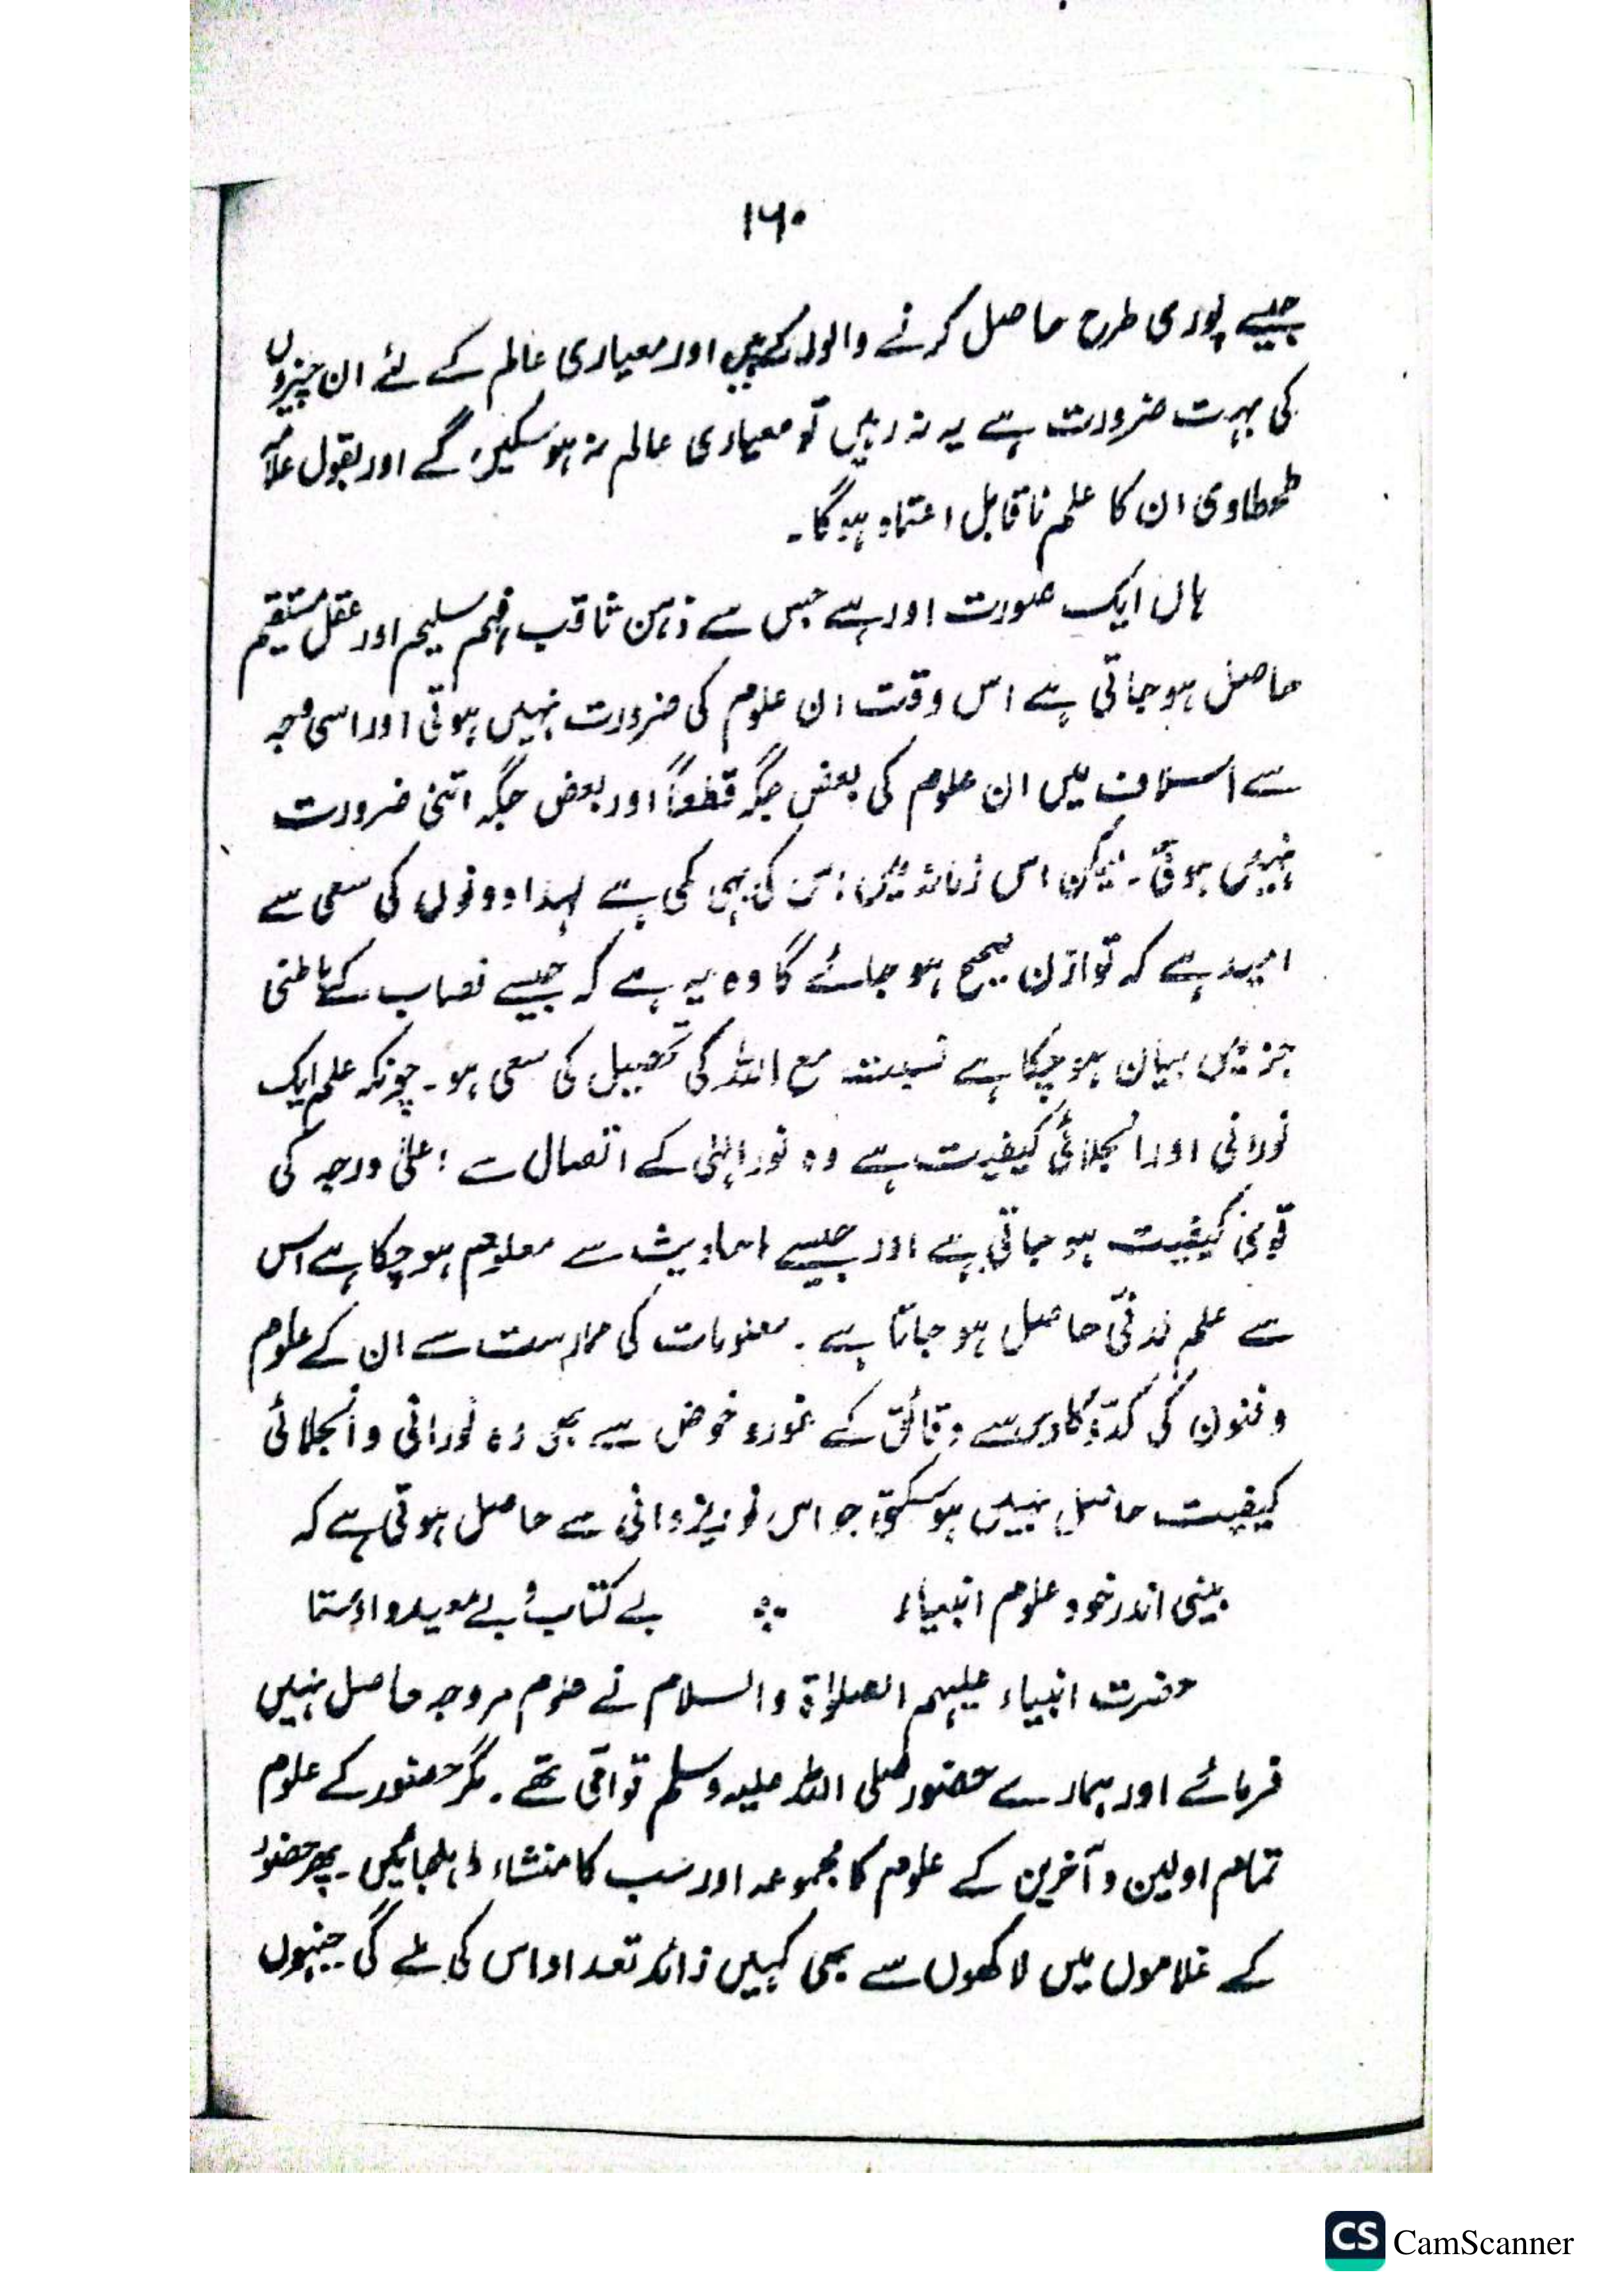 ۱۶۰
جیسے پوری طرح حاصل کرنے والوں کے ہیں اور معیاری عالم کے لئے ان چیزوں
کی بہت ضرورت ہے یہ نہ رہیں تو معیاری عالم نہ ہو سکیں گے اور بقول علامہ
طحطاوی ان کا علم نا قابل اعتماد ہوگا۔
ہاں ایک صورت اور ہے جس سے ذہن ثاقب فہم سلیم اور عقل مستقیم
حاصل ہو جاتی ہے اس وقت ان علوم کی ضرورت نہیں ہوتی اور اسی وجہ
سے اسلاف میں ان علوم کی بعض جگہ قطعاً اور بعض جگہ اتنی ضرورت
نہیں ہوتی۔ لیکن اس زمانہ میں اس کی بھی کمی ہے لہذا دونوں کی سعی سے
امید ہے کہ توازن صحیح ہو جائے گا وہ یہ ہے کہ جیسے نصاب کے باطنی
جز میں بیان ہو چکا ہے نسبت مع اللہ کی تحصیل کی سعی ہو۔ چونکہ علم ایک
نورانی اور انجلائی کیفیت ہے وہ نور الٰہی کے اتصال سے اعلیٰ درجہ کی
قوی کیفیت ہو جاتی ہے اور جیسے احادیث سے معلوم ہو چکا ہے اس
سے علم لدنّی حاصل ہو جاتا ہے۔ معنویات کی ممارست سے ان کے علوم
و فنون کی کدّ و کاوش سے دقائق کے غور و خوض سے بھی وہ نورانی و انجلائی
کیفیت حاصل نہیں ہو سکتی جو اس نور یزدانی سے حاصل ہوتی ہے کہ
بینی اندر خود علوم انبیاء ؞ بے کتاب و بے معید و اوستا
حضرت انبیاء علیہم الصلوٰۃ والسلام نے علوم مروجہ حاصل نہیں
فرمائے اور ہمارے حضور صلی اللہ علیہ وسلم تو اُمّی تھے۔ مگر حضور کے علوم
تمام اولین و آخرین کے علوم کا مجموعہ اور سب کا منشاء و ملجا ہیں۔ پھر حضور
کے غلاموں میں لاکھوں سے بھی کہیں زائد تعداد اس کی ملے گی جنہوں
CS CamScanner